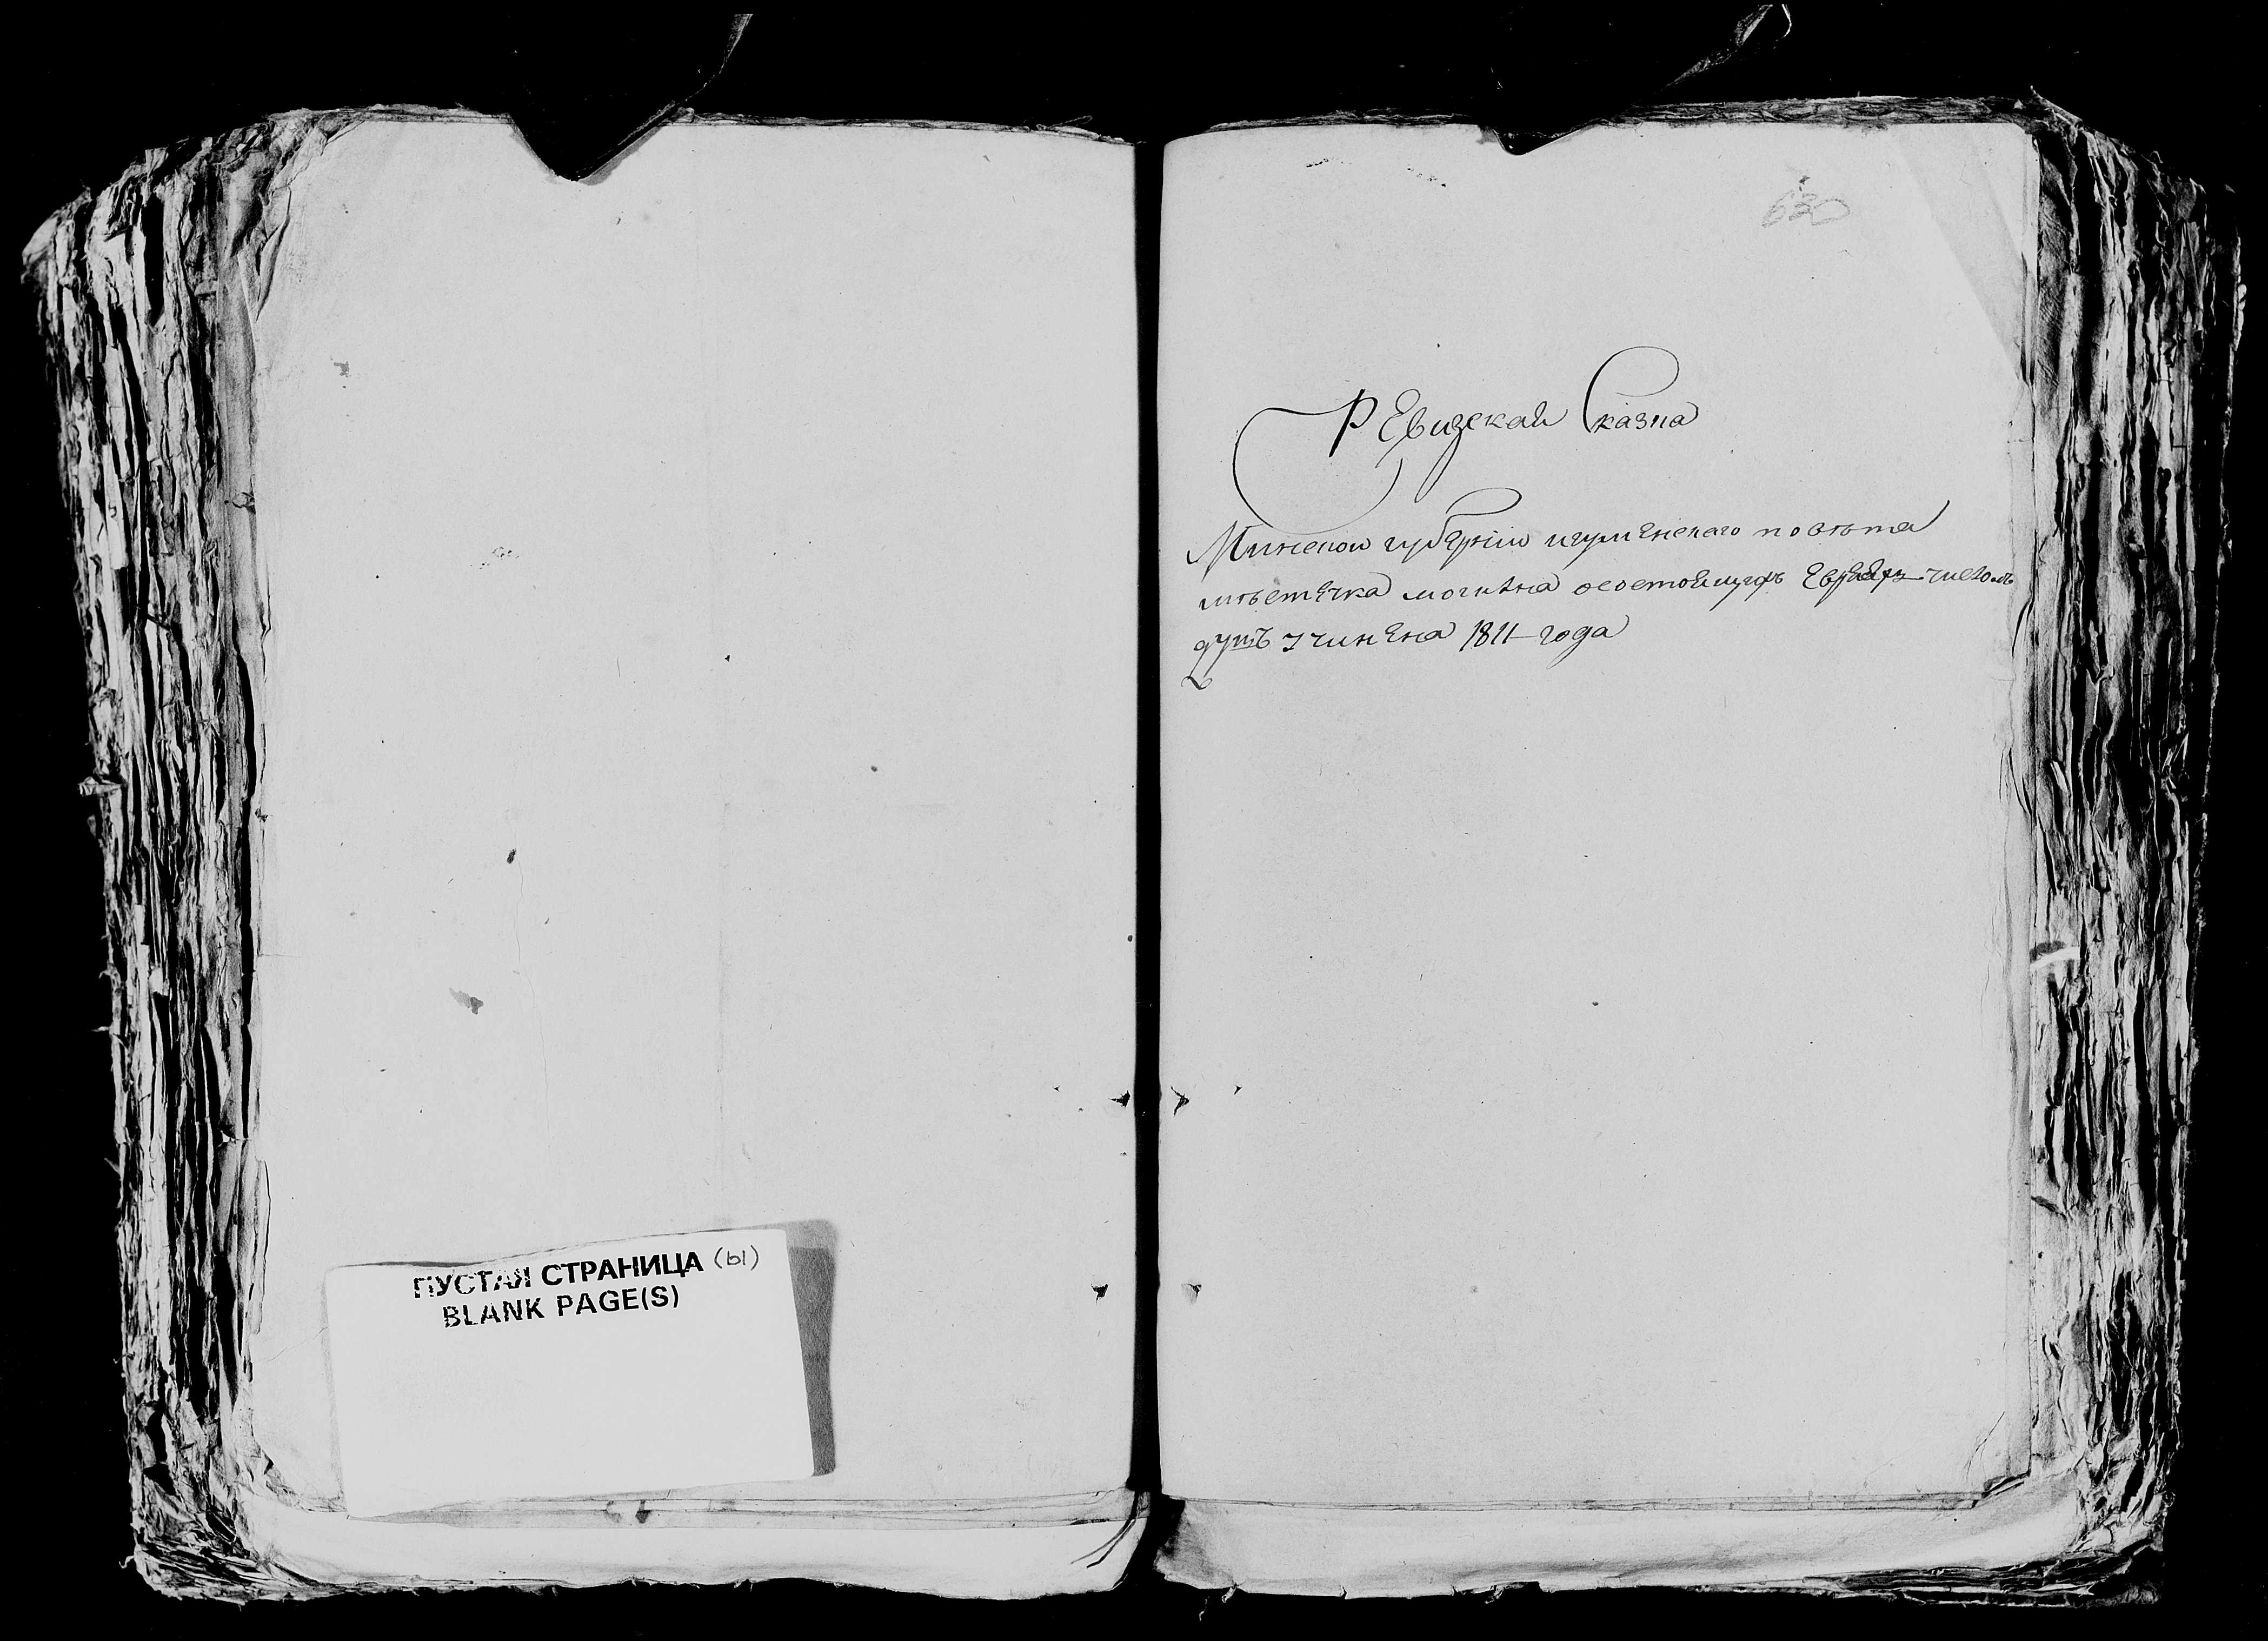 ПУСТАЯ СТРАНИЦА (ы)
BLANK PAGE(S)
630
Ревизская Сказка
Минской губерніи игуменскаго повѣта
мѣстечка могилна осостоящихъ Евреяхъ числомъ
душъ учинена 1811 года